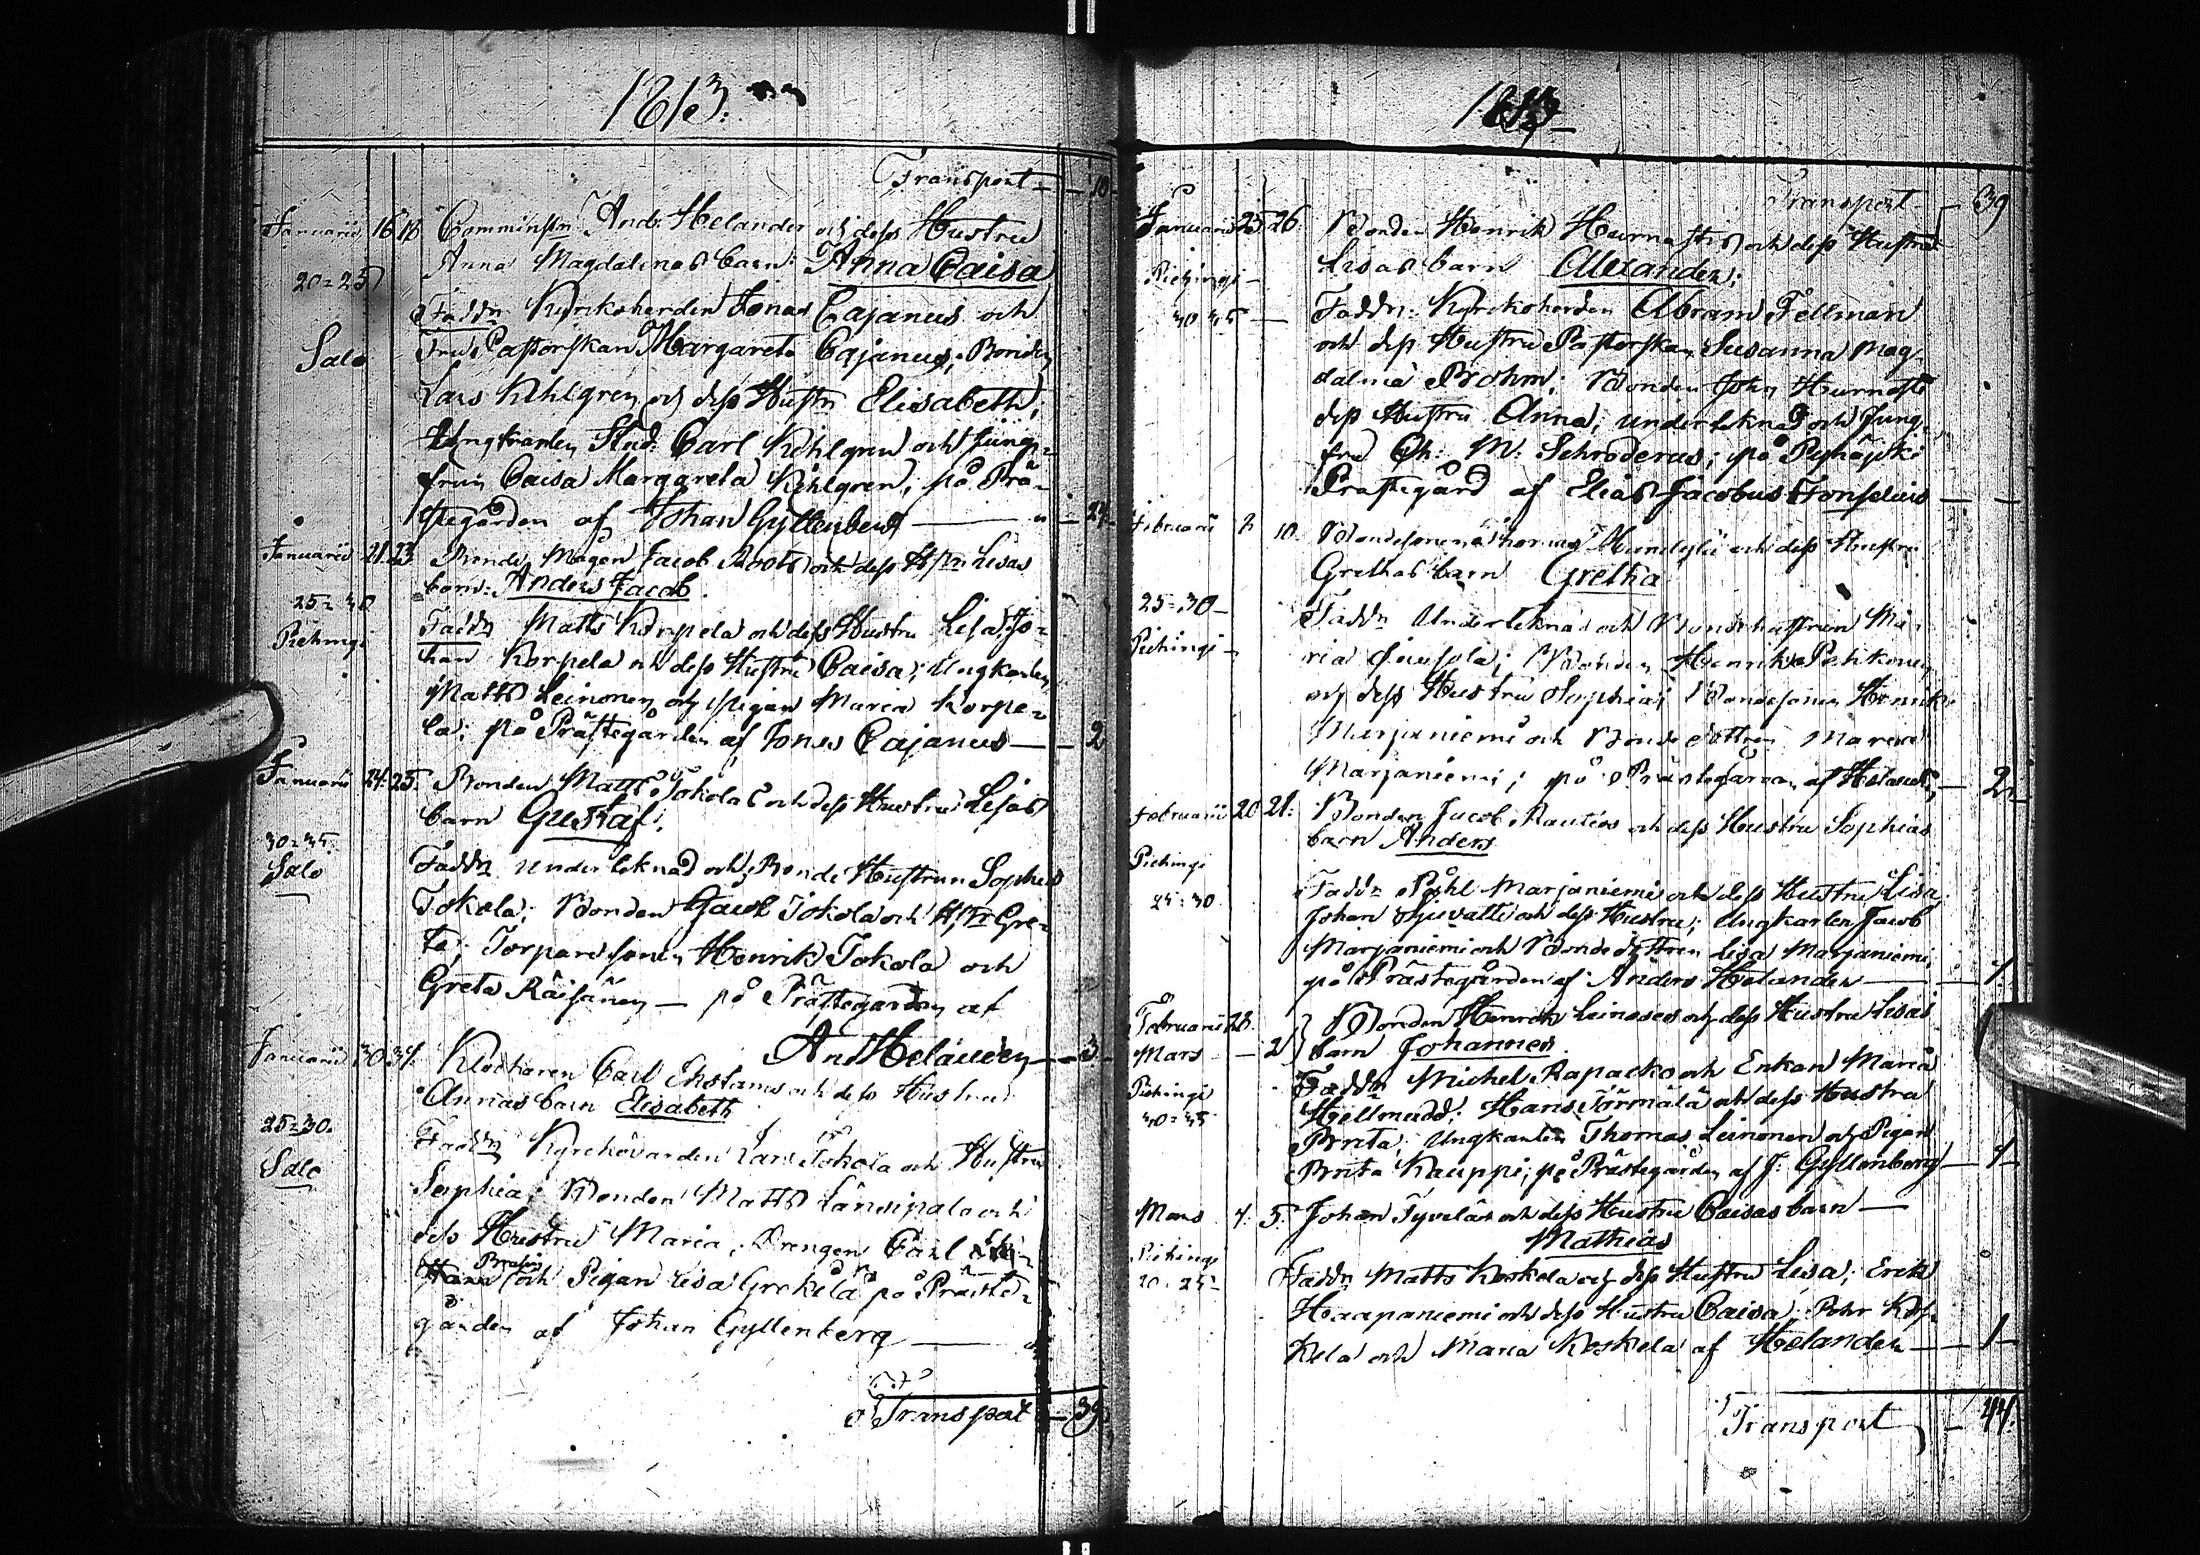 1813.
Transport - 10 -
Januarii 16 18 Comministn And: Helander och dess Hustru
Anna Magdalenas barn: Anna Caisa
20=25
Faddr: Kyrkoherden Jonas Cajanus och
Salo
Fru Pastorskan Margareta Cajanus, Bonden
Lars Kihlgren och dess Hustru Elisabeth,
Ungkarlen Stud: Carl Kihlgren och Jung=
frun Caisa Margareta Kihlgren; på Prä=
stegården af Johan Gyllenberg — 24 -
Januarii 21. 23 Bonde Mågen Jacob och dess Hstru Lisas
barn: Anders Jacob.
25=30
Piehingi
Faddr Matts Korpela och dess Hustru Lisa, Jo=
han Korpela och dess Hustru Caisa; Ungkarlen
Matts Leinonen och Pigan Maria Korpe=
la; på Prästegården af Jonas Cajanus — 2
Januarii 24. 25. Bonden Matts Jokelas och dess Hustru Lisas
barn Gustaf.
30=35.
Salo
Faddr underteknad och Bonde Hustrun Sophia
Jokela; Bonden Jacob Jokela och Hstr Gre=
ta; Torparesonen Henrik Jokela och
Greta Räisänen — på Prästegården af
And Helander — 3 -
Januarii 30. 31. Klockaren Carl och dess Hustru
Annas barn Elisabeth
25=30.
Salo
Faddr Kyrckovärden Lars Jokela och Hustru
Sophia; Bonden Matts Länsipalo och
dess Hustru Maria, Drengen Carl
och Pigan Lisa på Präste=
gården af Johan Gyllenberg —
Transport - 39

Transport - 39
Januarii 25 26. Bonden Henrik och dess Hustru
Lisas barn Alexander;
Piehingi -
30 35 —
Faddr: Kyrckoherden Abram Fellman
och dess Hustru Pastorskan Susanna Mag=
dalena Bohm; Bonden John
dess Hustru Anna; underteknad och Jung=
fru Ch: M: Schroderus; på Pyhäjoki
Prästegård af Elias Jacobus — —
Februarii 10. Bondesonen Thomas och dess Hustru
Grethas barn Gretha
25=30 -
Piehingi -
Faddr Undertecknad och Bondehustrun Ma=
ria Bonden Henrik
och dess Hustru Sophia; Bondesonen Henrik
Marjaniemi och Bonde dottren Maria
Marjaniemi; på Prästegården af Helander — 2 -
Februarii 20 21. Bonden Jacob Rautios och dess Hustru Sophias
barn Anders
Piehingi
25=30.
Faddr Påhl Marjaniemi och dess Hustru Lisa;
Johan och dess Hustru; Ungkarlen Jacob
Marjaniemi och Bonde dottren Lisa Marjaniemi,
på Prästegården af Anders Helander — 1.
Februarii 28. Bonden Henrik Leinoses och dess Hustru Lisas
Mars — 2 barn Johannes
Piehingi
40=45
Faddr Michel Rapacko och Enkan Maria
Hans Törmälä och dess Hustru
Brita; Ungkarlen Thomas Leinonen och Pigan
Brita Kauppi; på Prästegården af J: Gyllenberg — 1 -
Mars 4. 5. Johan Tyvelas och dess Hustru Caisas barn —
Mathias
Piehingi
20=25 -
Faddr Matts Koskela och dess Hustru Lisa; Erik
Haapaniemi och dess Hustru Caisa; Pehr Kos=
kela och Maria Koskela af Helander — 1 -
Transport - 44.